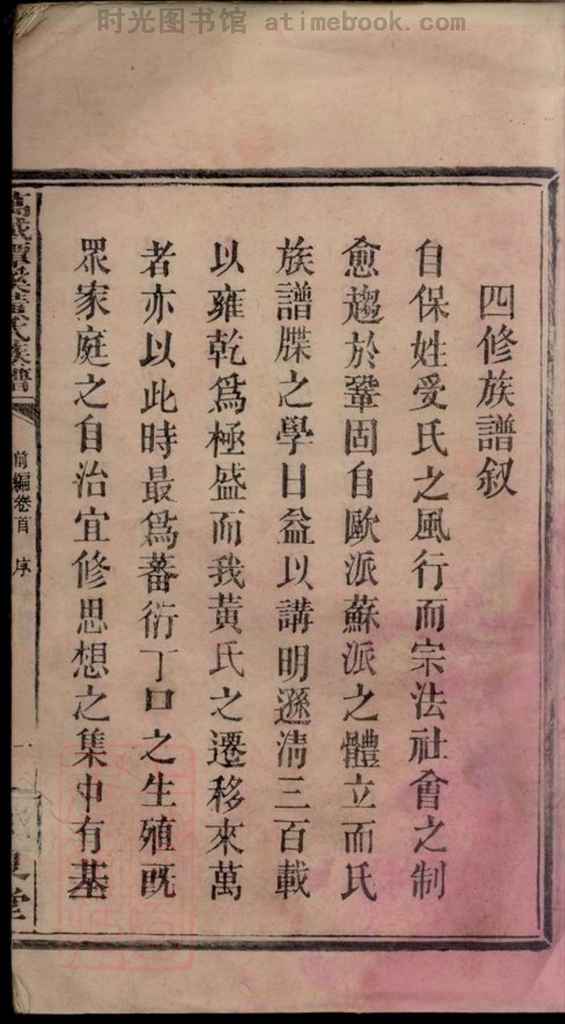 时光图书馆 atimebook.com
四修族譜叙
自保姓受氏之風行而宗法社會之制
愈趨於鞏固自歐派蘇派之體立而氏
族譜牒之學日益以講明遜清三百載
以雍乾爲極盛而我黄氏之遷移來萬
者亦以此時最爲蕃衍丁口之生殖既
眾家庭之自治宜修思想之集中有基
萬載潭溪黃氏族譜
前編卷首 序
一
堂